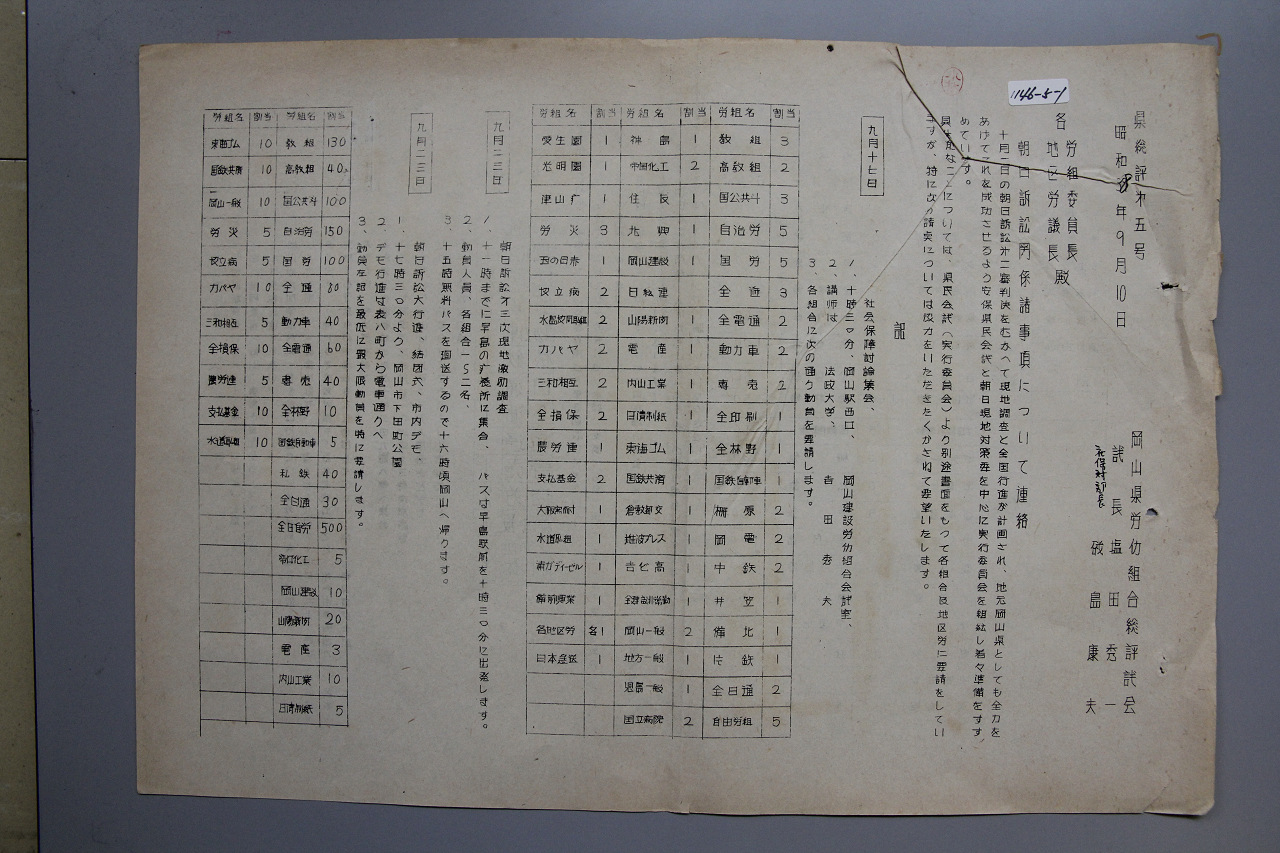 1146-5-1
県総評オ五号
昭和38年9月10日
岡山県労仂組合総評試会
試長 塩田秀一
社保対部長 砂島康夫
各 労組委員長
地区労議長 殿
朝日訴訟関係諸事項について連絡
十月二日の朝日訴訟オ二審判決をむかへて現地調査と全国行進が計画され、地元岡山県としても全力を
あげてこれを成功させるよう安保県民会試と朝日現地対策委を中心に実行委員会を組織し着々準備をすす
めています。
具体的なことについては、県民会試(実行委員会)より別途書面をもつて各組合及地区労に要請をしてい
ますが、特に左の請求については
記
九月十七日
社会保障討論集会、
1、十時三〇分、岡山駅西口、岡山建設労仂組合会試室、
2、講師は 法政大学、吉田秀夫
3、各組合に次の通り動員を要請します。
労組名 割当 労組名 割当 労組名 割当
教組 3 神島 1 愛生園 1
高教組 2 帝国化工 2 光明園 1
国公共斗 3 住友 1 津山療 1
自治労 5 北興 1 労災 3
国労 5 岡山建設 1 玉の日赤 1
全逓 3 日転運 2 倉立病 2
全電通 2 山陽新聞 2 2
動力車 2 電産 1 カバヤ 2
専売 2 内山工業 1 三和相互 2
全印刷 1 日清制紙 1 全損保 2
全林野 1 東海ゴム 1 農労連 1
国鉄自動車 1 国鉄共済 1 支払基金 2
柵原 2 倉敷都交 1 1
岡電 2 難波プレス 1 水道県組 1
中鉄 2 吉化高 1 1
井笠 1 1 備前東業 1
備北 1 岡山一般 2 各地区労 各1
片鉄 1 地方一般 1 日本産送 1
全日通 2 児島一般 1
自由労組 5 国立病院 2
九月二三日
朝日訴訟オ三次現地激励調査
1、十一時までに早島の療養所に集合、バスは早島駅前を十時三〇分に出発します。
2、動員人員、各組合一〜二名、
3、十五時無料バスを回送するので十六時頃岡山へ帰ります。
九月二三日
朝日訴訟大行進、結団式、市内デモ、
1、十七時三〇分より、岡山市下田町公園
2、デモ行進は表八町から電車通りへ
3、動員左記を最低に最大限動員を特に要請します。
労組名 割当 労組名 割当
教組 130 東海ゴム 10
高教組 40 国鉄共済 10
国公共斗 100 岡山一般 10
自治労 150 労災 5
国労 100 倉立病 5
全逓 80 カバヤ 10
動力車 40 三和相互 5
全電通 60 全損保 10
専売 40 農労連 5
全林野 10 支払基金 10
国鉄自動車 5 水道県組 10
私鉄 40
全日通 30
全日自労 500
帝国化工 5
岡山建設 10
山陽新聞 20
電産 3
内山工業 10
日清制紙 5